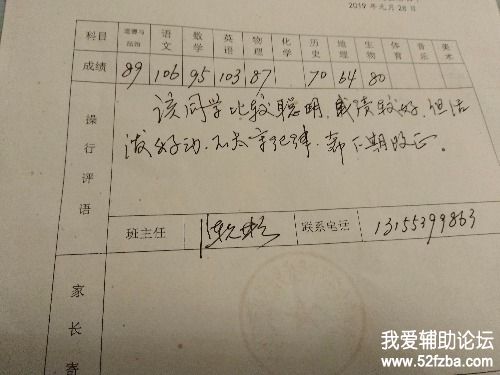 2019 年元月28日
科目 道德与法治 语文 数学 英语 物理 化学 历史 地理 生物 体育 音乐 美术
成绩 89 106 95 103 87 70 64 80
操行评语
该同学比较聪明,成绩较好,但活
泼好动,不太守纪律,希下期改正。
班主任 联系电话 13155399863
家长寄
我爱辅助论坛
www.52fzba.com